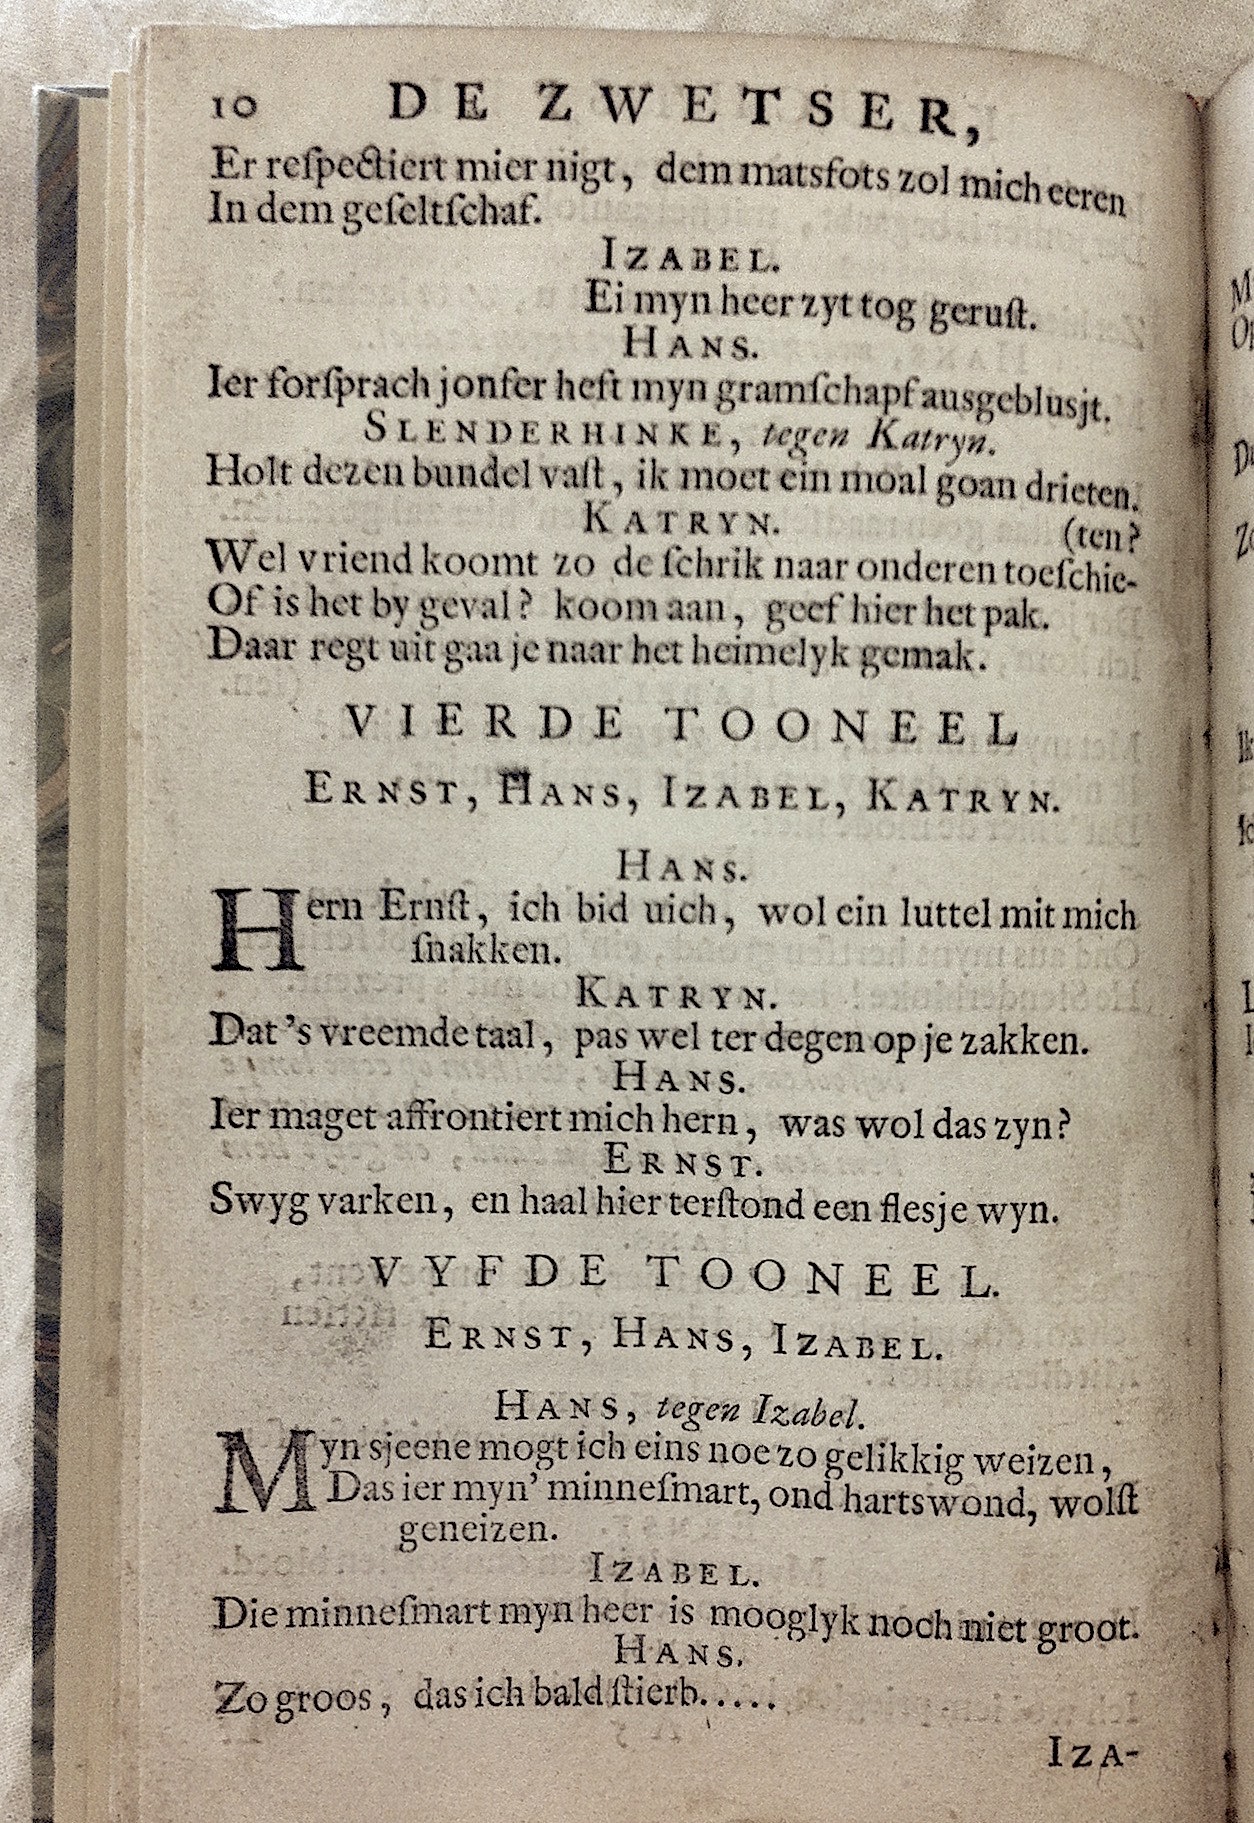 10 DE ZWETSER,
Er reſpectiert mier nigt, dem matsfots zol mich eeren
In dem geſeltſchaf.
IZABEL.
Ei myn heer zyt tog geruſt.
HANS.
Ier forſprach jonfer heft myn gramſchapf ausgeblusjt.
SLENDERHINKE, tegen Katryn.
Holt dezen bundel vaſt, ik moet ein moal goan drieten.
KATRYN. (ten?
Wel vriend koomt zo de ſchrik naar onderen toeſchie-
Of is het by geval? koom aan, geef hier het pak.
Daar regt uit gaa je naar het heimelyk gemak.
VIERDE TOONEEL
ERNST, HANS, IZABEL, KATRYN.
HANS.
Hern Ernſt, ich bid uich, wol ein luttel mit mich
ſnakken.
KATRYN.
Dat 's vreemde taal, pas wel ter degen op je zakken.
HANS.
Ier maget affrontiert mich hern, was wol das zyn?
ERNST.
Swyg varken, en haal hier terſtond een flesje wyn.
VYFDE TOONEEL.
ERNST, HANS, IZABEL.
HANS, tegen Izabel.
Myn sjeene mogt ich eins noe zo gelikkig weizen,
Das ier myn' minneſmart, ond hartswond, wolſt
geneizen.
IZABEL.
Die minneſmart myn heer is mooglyk noch niet groot.
HANS.
Zo groos, das ich bald ſtierb.....
IZA-